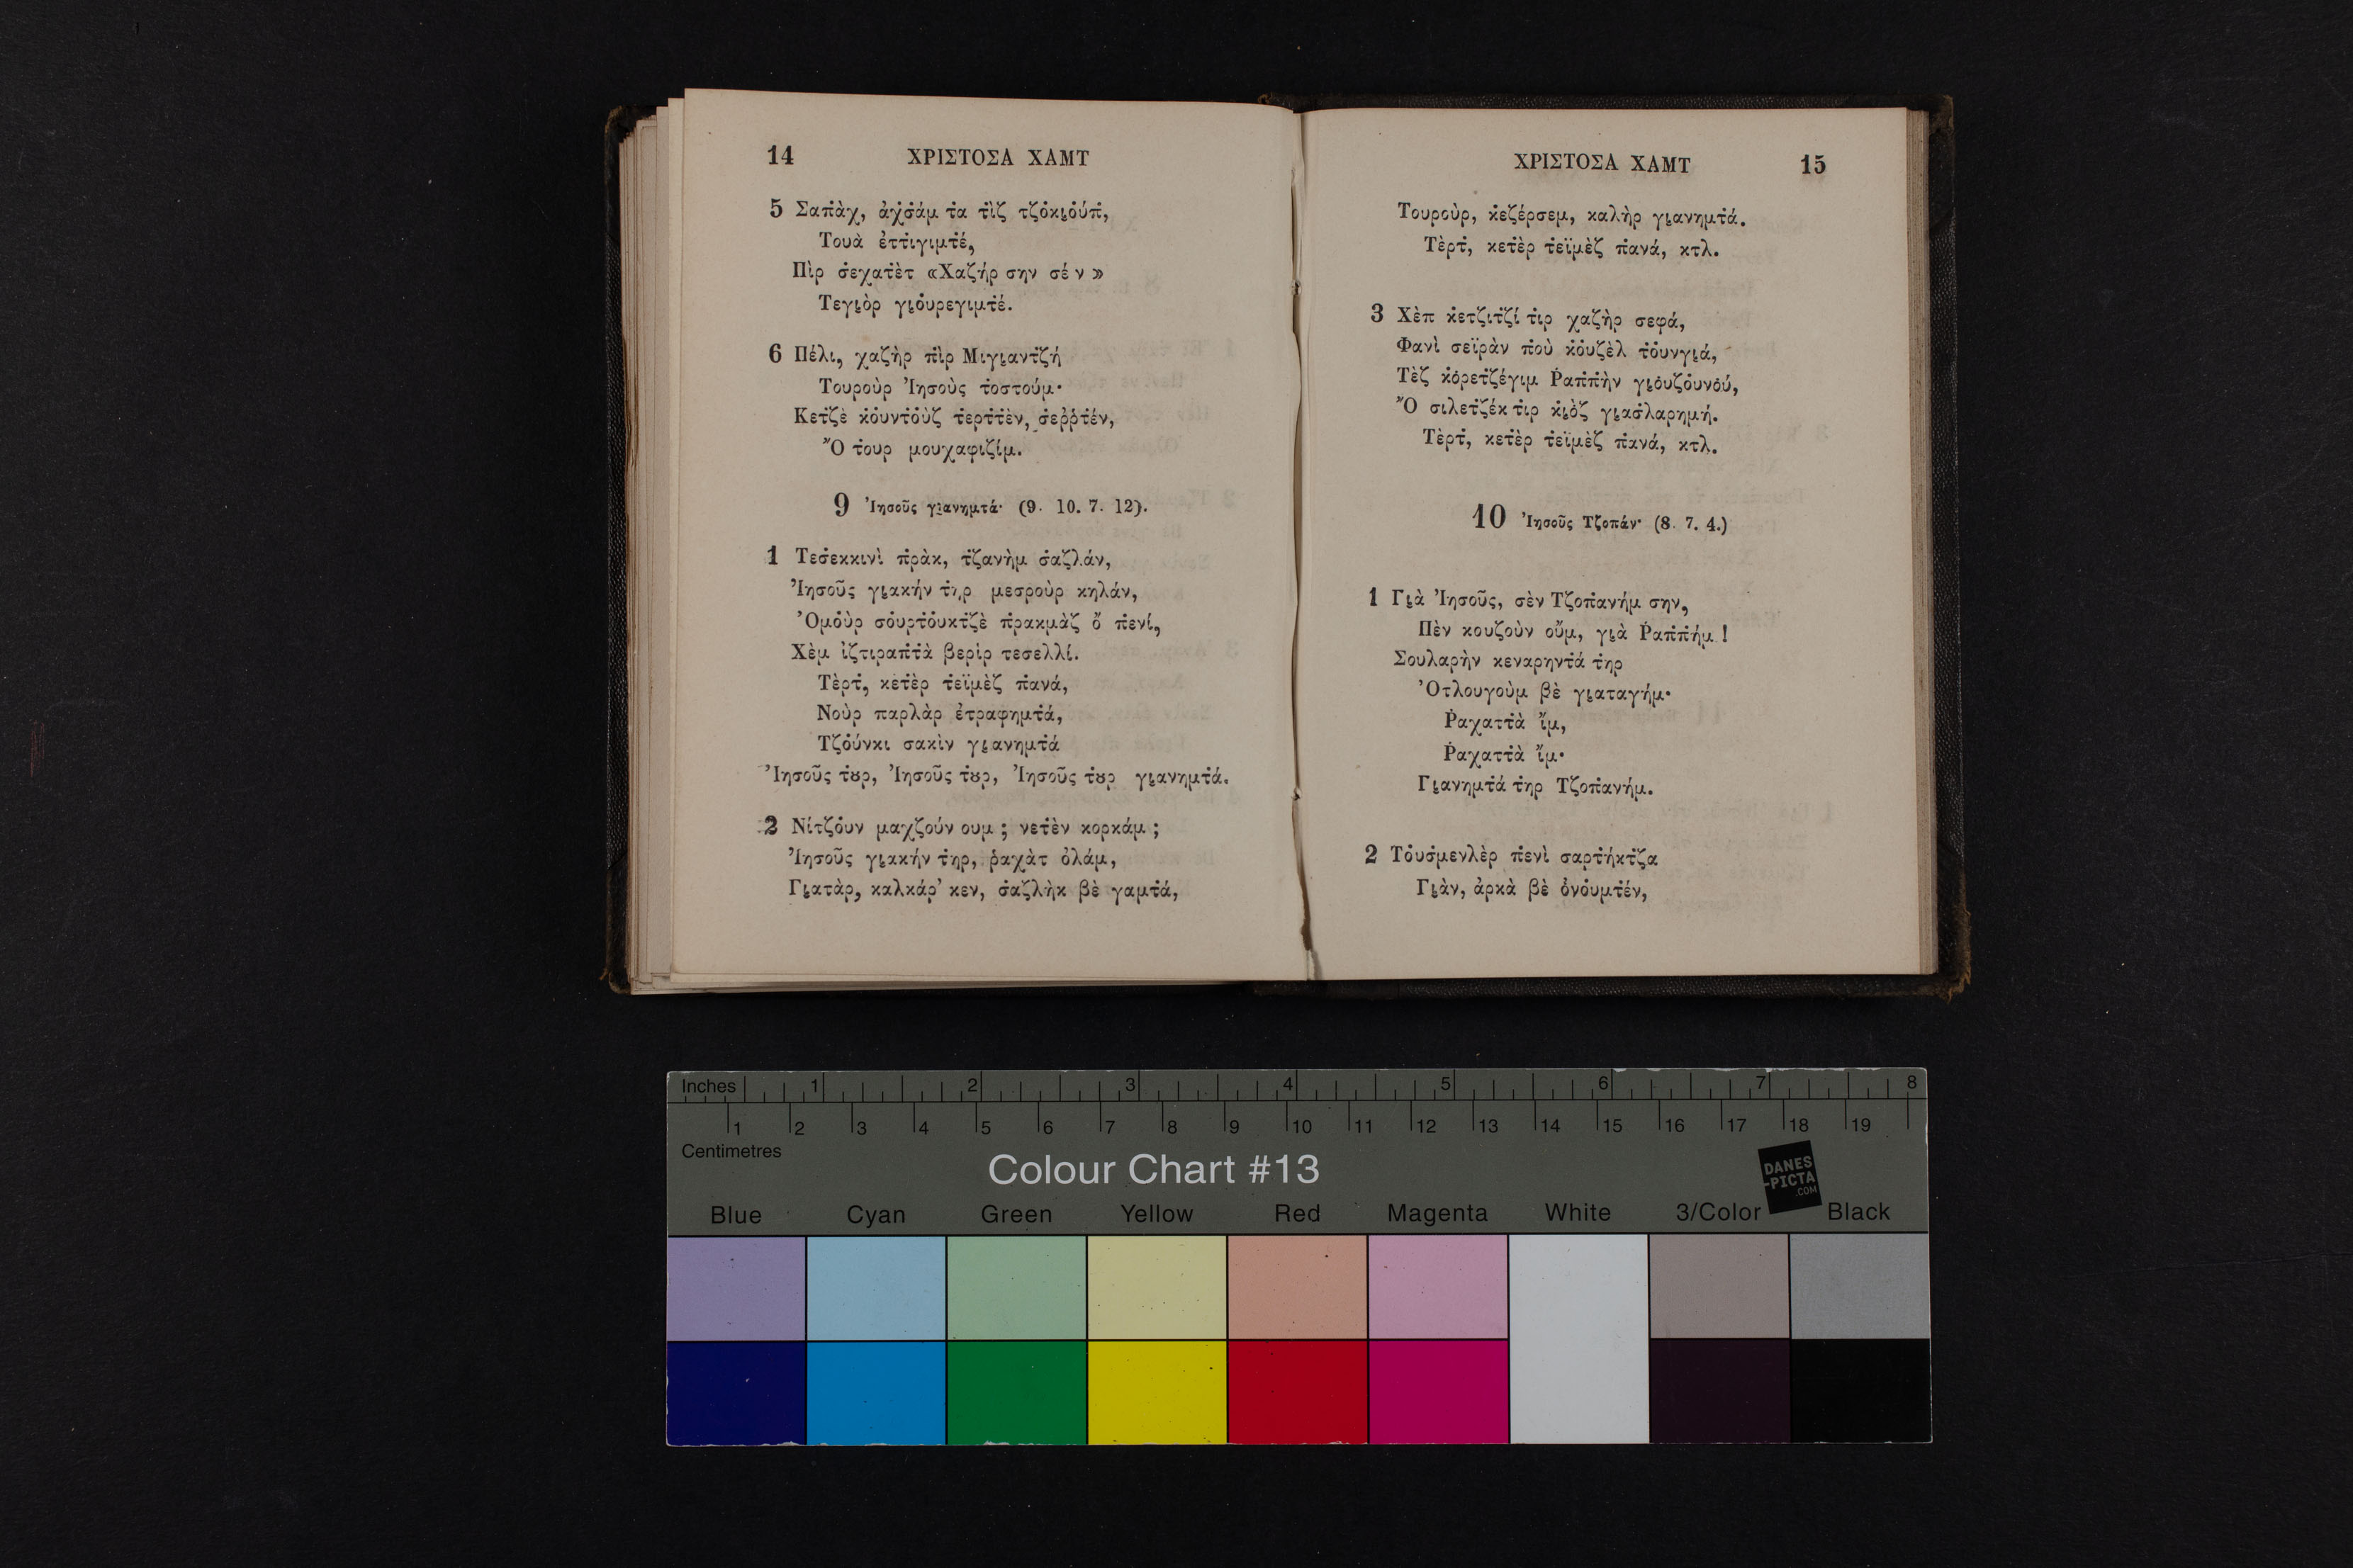 14 ΧΡΙΣΤΟΣΑ ΧΑΜΤ
5 Σαπ̇ὰχ, ἀχσ̇άμ τ̇α τ̇ὶζ τζ̇ὀκι̨ὀύπ̇,
Τουὰ ἐττ̇ιγιμτ̇έ,
Πὶρ σ̇εχατ̇ὲτ «Χαζήρ σην σέν»
Τεγι̨ὸρ γι̨ὀυρεγιμτ̇έ.
6 Πέλι, χαζὴρ π̇ὶρ Μιγι̨αντ̇ζή
Τουροὺρ Ἰησοὺς τ̇οστούμ·
Κετ̇ζὲ κ̇ὀυντ̇ὀὺζ τ̇ερττ̇ὲν, σ̇ερῤτ̇έν,
Ὄ τ̇ουρ μουχαφιζίμ.
9 Ἰησοῦς γι̨ανημτ̇ά· (9. 10. 7. 12).
1 Τεσ̇εκκινὶ π̇ρὰκ, τ̇ζανὴμ σ̇αζλάν,
Ἰησοῦς γι̨ακήν τ̇ηρ μεσροὺρ κηλάν,
Ὀμὀὺρ σὀυρτ̇ὀυκτ̇ζὲ π̇ρακμὰζ ὄ π̇ενί,
Χὲμ ἰζτιραπ̇τ̇ὰ βερὶρ τεσελλί.
Τὲρτ̇, κετ̇ὲρ τ̇εϊμὲζ π̇ανά,
Νοὺρ παρλὰρ ἐτραφημτ̇ά,
Τζ̇ὀύνκι σακὶν γι̨ανημτ̇ά
Ἰησοῦς τ̇ȣρ, Ἰησοῦς τ̇ȣρ, Ἰησοῦς τ̇ȣρ γι̨ανημτ̇ά.
2 Νίτζ̇ὀυν μαχζούν ουμ; νετ̇ὲν κορκάμ;
Ἰησοῦς γι̨ακήν τ̇ηρ, ῥαχὰτ ὀλάμ,
Γι̨ατὰρ, καλκάρ’ κεν, σ̇αζλὴκ βὲ γαμτ̇ά,
ΧΡΙΣΤΟΣΑ ΧΑΜΤ 15
Τουροὺρ, κ̇εζέρσεμ, καλὴρ γι̨ανημτ̇ά.
Τὲρτ̇, κετ̇ὲρ τ̇εϊμὲζ π̇ανά, κτλ.
3 Χὲπ κ̇ετζ̇ιτ̇ζί τ̇ιρ χαζὴρ σεφά,
Φανὶ σεϊρὰν π̇οὺ κ̇ὀυζὲλ τ̇ὀυνγι̨ά,
Τὲζ κ̇ὀρετ̇ζέγιμ Ῥαπ̇π̇ὴν γι̨ὀυζὀυνὀύ,
Ὄ σιλετ̇ζέκ τ̇ιρ κ̇ι̨ὂζ γι̨ασ̇λαρημή.
Τὲρτ̇, κετ̇ὲρ τ̇εϊμὲζ π̇ανά, κτλ.
10 Ἰησοῦς Τζ̇οπάν· (8. 7. 4.)
1 Γι̨ὰ Ἰησοῦς, σὲν Τζ̇οπ̇ανήμ σην,
Πὲν κουζοὺν οὔμ, γι̨ὰ Ῥαπ̇π̇ήμ!
Σουλαρὴν κεναρηντ̇ά τ̇ηρ
Ὀτλουγοὺμ βὲ γι̨αταγήμ·
Ῥαχαττ̇ὰ ἴμ,
Ῥαχαττ̇ὰ ἴμ·
Γι̨ανημτ̇ά τ̇ηρ Τζ̇οπ̇ανήμ.
2 Τ̇ὀυσ̇μενλὲρ π̇ενὶ σαρτ̇ήκτ̇ζα
Γι̨ὰν, ἀρκὰ βὲ ὀ̇νὀυμτ̇έν,
Inches 1 2 3 4 5 6 7 8
1 2 3 4 5 6 7 8 9 10 11 12 13 14 15 16 17 18 19
Centimetres
Colour Chart #13
DANES
-PICTA
.COM
Blue Cyan Green Yellow Red Magenta White 3/Color Black